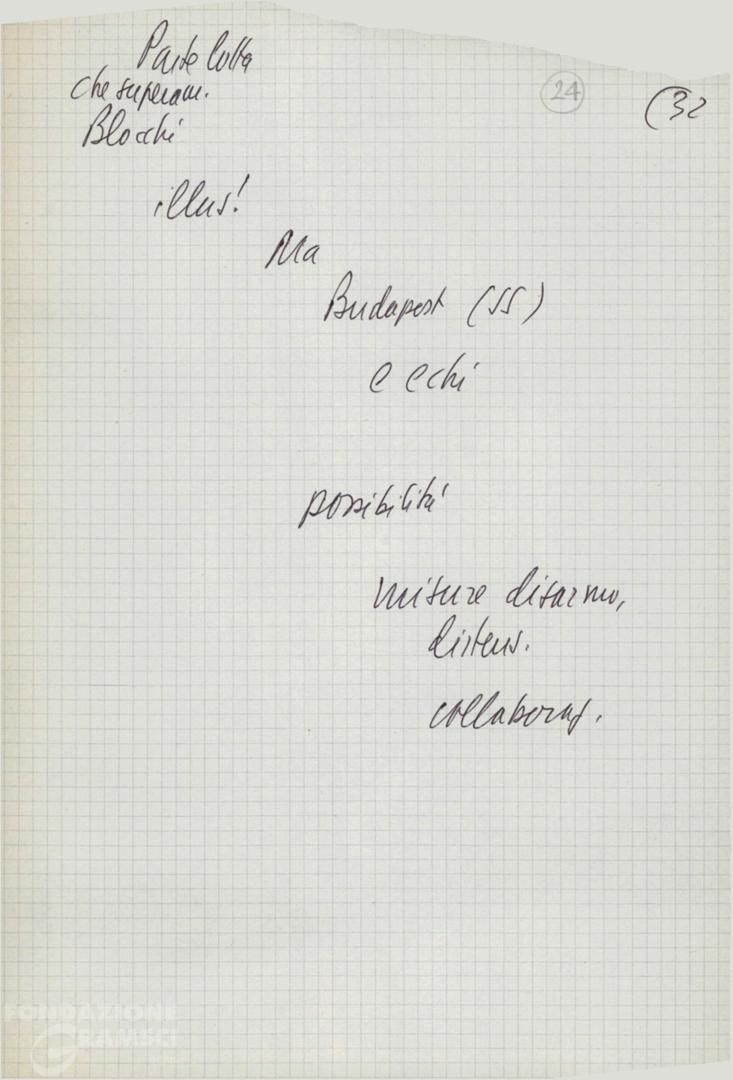 Parte lotta
24
(32
che superam.
Blocchi
illus!
Ma
Budapest (SS)
e echi
possibilità
misure disarmo,
distens.
collaboraz.
FONDAZIONE
GRAMSCI